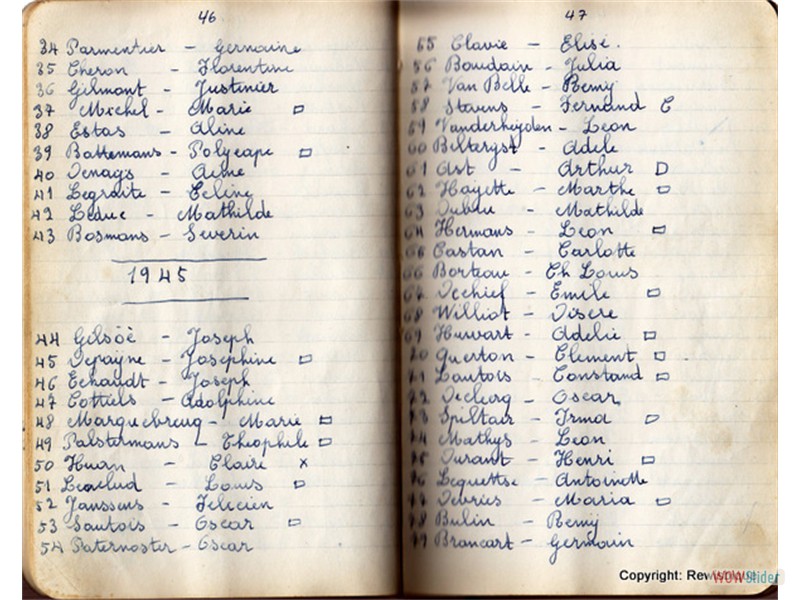 46
34 Parmentier - Germaine
35 Cheron - Florentine
36 Gilmont - Justinier
37 Michel - Marie □
38 Estas - Aline
39 Battemans - Polycape □
40 Denays - Aline
41 Legraite - Celine
42 Leduc - Mathilde
43 Bosmans - Severin
1945
44 Gilsoè - Joseph
45 Depayne - Josephine □
46 Echaudt - Joseph
47 Cottiels - Adolphine
48 - Marie □
49 Palstermans - Theophile □
50 - Claire x
51 - Louis □
52 Janssens - Felicien
53 Sautois - Oscar □
54 Paternoster - Oscar
47
55 Clavie - Elise.
56 Baudain - Julia
57 Van Belle - Remy
58 Stavens - Fernand
59 Vanderheyden - Leon
60 - Adele
61 Ast - Arthur □
62 Hayette - Marthe □
63 Dubau - Mathilde
64 Hermans - Leon □
65 Castan - Carlotte
66 Borteau - Ch Louis
67 Dechief - Emile □
68 Williot - Disere
69 Huwart - Adelie □
70 Querton - Clement □
71 Lautois - Constand □
72 Declerq - Oscar
73 Spiltair - Irma □
74 Mathys - Leon
75 Durant - Henri □
76 Lequette - Antoinette
77 Devries - Maria □
78 Bulin - Remy
79 Brancart - Germain
Copyright:
WOW Slider